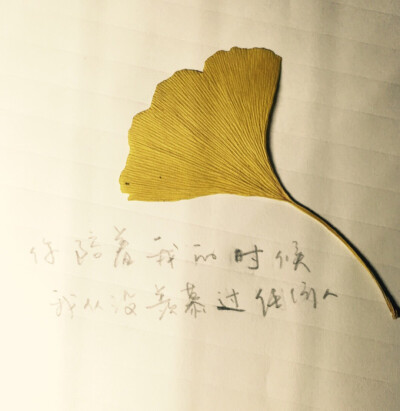 你陪着我的时候
我从没羡慕过任何人